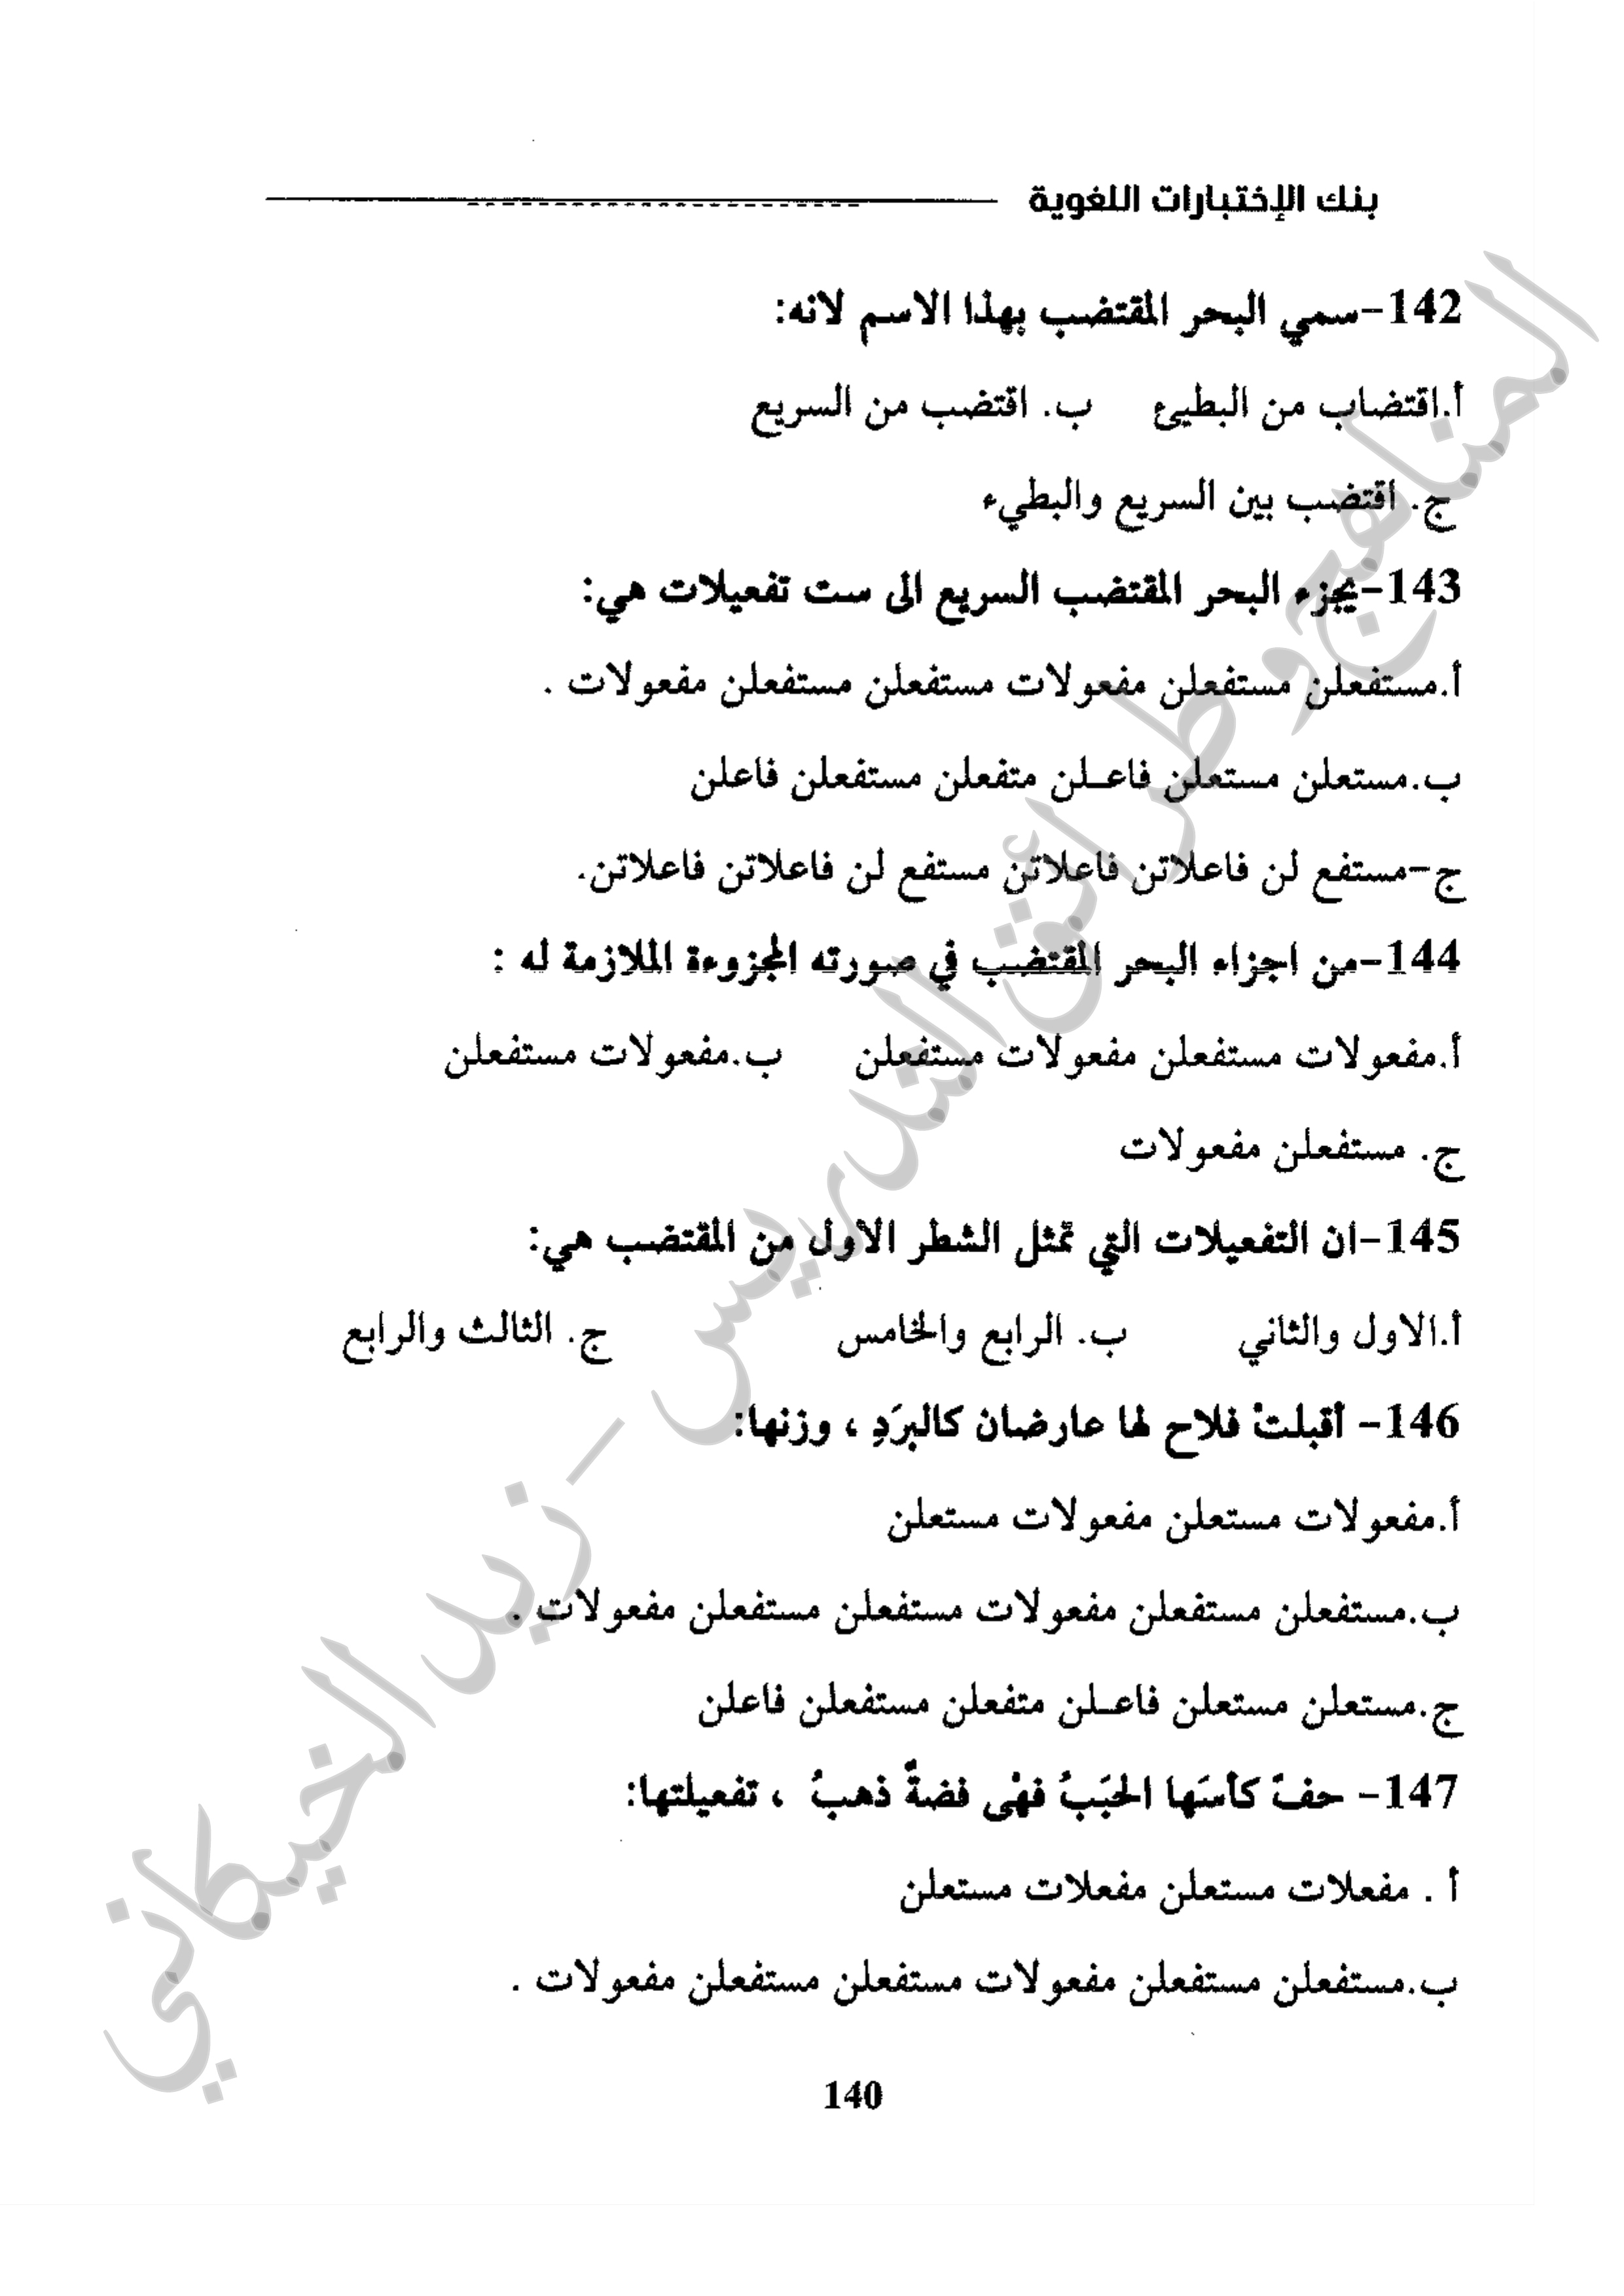 بنك الإختبارات اللغوية
142-سمي البحر المقتضب بهذا الاسم لانه:
أ.اقتضاب من البطيئ ب. اقتضب من السريع
ج. اقتضب بين السريع والبطيء
143-يجزء البحر المقتضب السريع الى ست تفعيلات هي:
أ.مستفعلن مستفعلن مفعولات مستفعلن مستفعلن مفعولات .
ب.مستعلن مستعلن فاعـلن متفعلن مستفعلن فاعلن
ج-مستفع لن فاعلاتن فاعلاتن مستفع لن فاعلاتن فاعلاتن.
144-من اجزاء البحر المقتضب في صورته المجزوءة الملازمة له :
أ.مفعولات مستفعلن مفعولات مستفعلن ب.مفعولات مستفعلن
ج. مستفعلن مفعولات
145-ان التفعيلات التي تمثل الشطر الاول من المقتضب هي:
أ.الاول والثاني ب. الرابع والخامس ج. الثالث والرابع
146- أقبلتْ فلاح لها عارضان كالبرَدِ ، وزنها:
أ.مفعولات مستعلن مفعولات مستعلن
ب.مستفعلن مستفعلن مفعولات مستفعلن مستفعلن مفعولات .
ج.مستعلن مستعلن فاعـلن متفعلن مستفعلن فاعلن
147- حفّ كأسَها الحَبَبُ فهْى فضةٌ ذهبُ ، تفعيلتها:
أ . مفعلات مستعلن مفعلات مستعلن
ب.مستفعلن مستفعلن مفعولات مستفعلن مستفعلن مفعولات .
140
المناهج وطرائق التدريس - زيد الخيكاني